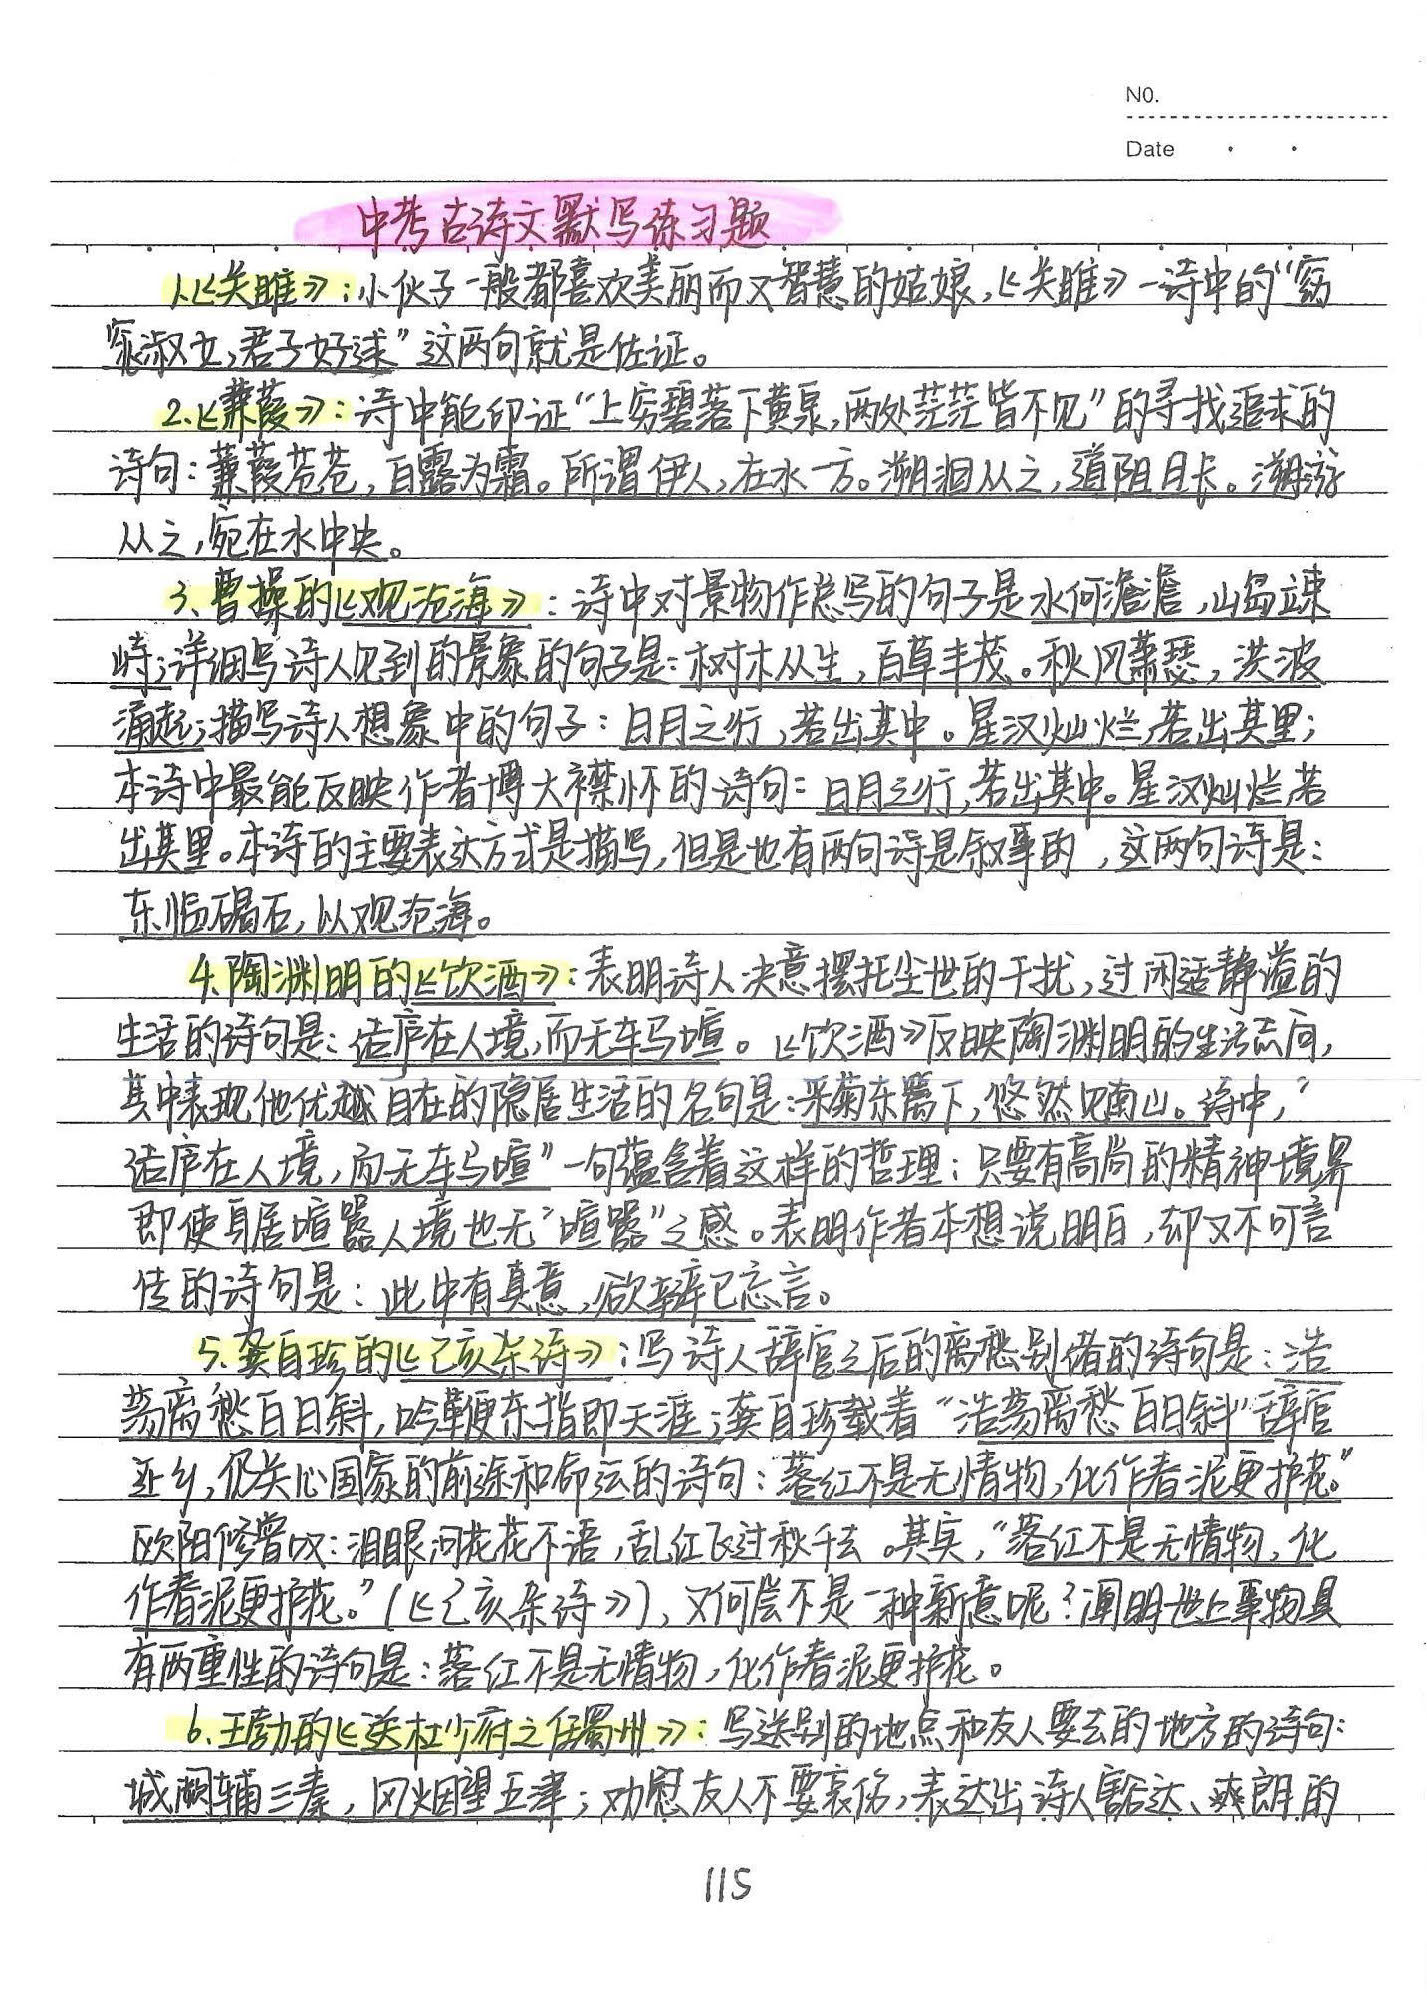 NO.
Date
中考古诗文默写练习题
1.《关雎》:小伙子一般都喜欢美丽而又智慧的姑娘,《关雎》一诗中的“窈
窕淑女,君子好逑”这两句就是佐证。
2.《蒹葭》:诗中能印证“上穷碧落下黄泉,两处茫茫皆不见”的寻找追求的
诗句:蒹葭苍苍,白露为霜。所谓伊人,在水一方。溯洄从之,道阻且长。溯游
从之,宛在水中央。
3、曹操的《观沧海》:诗中对景物作总写的句子是水何澹澹,山岛竦
峙;详细写诗人见到的景象的句子是:树木丛生,百草丰茂。秋风萧瑟,洪波
涌起;描写诗人想象中的句子:日月之行,若出其中。星汉灿烂,若出其里;
本诗中最能反映作者博大襟怀的诗句:日月之行,若出其中。星汉灿烂若
出其里。本诗的主要表达方式是描写,但是也有两句诗是叙事的,这两句诗是:
东临碣石,以观沧海。
4.陶渊明的《饮酒》:表明诗人决意摆托尘世的干扰,过闲适静谧的
生活的诗句是:结庐在人境,而无车马喧。《饮酒》反映陶渊明的生活志向,
其中表现他优越自在的隐居生活的名句是:采菊东篱下,悠然见南山。诗中,“
结庐在人境,而无车马喧”一句蕴含着这样的哲理:只要有高尚的精神境界
即使身居喧嚣人境也无“喧嚣”之感。表明作者本想说明白,却又不可言
传的诗句是:此中有真意,欲辩已忘言。
5.龚自珍的《己亥杂诗》:写诗人辞官之后的离愁别绪的诗句是:浩
荡离愁白日斜,吟鞭东指即天涯;龚自珍载着“浩荡离愁白日斜”辞官
还乡,仍关心国家的前途和命运的诗句:落红不是无情物,化作春泥更护花。”
欧阳修曾叹:泪眼问花花不语,乱红飞过秋千去。其实,“落红不是无情物,化
作春泥更护花。”(《己亥杂诗》),又何尝不是一种新意呢?阐明世上事物具
有两重性的诗句是:落红不是无情物,化作春泥更护花。
6.王勃的《送杜少府之任蜀州》:写送别的地点和友人要去的地方的诗句:
城阙辅三秦,风烟望五津;劝慰友人不要哀伤,表达出诗人豁达、爽朗的
115